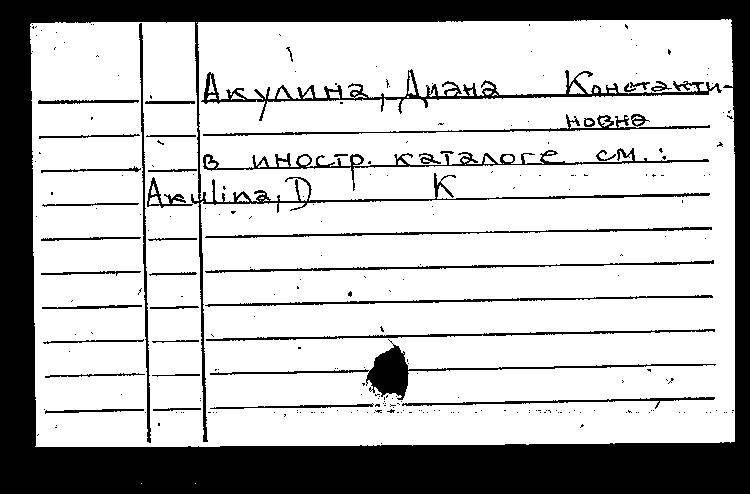 Акулина, Диана Константи-
новна
в иностр. каталоге см.:
Akulina, D K